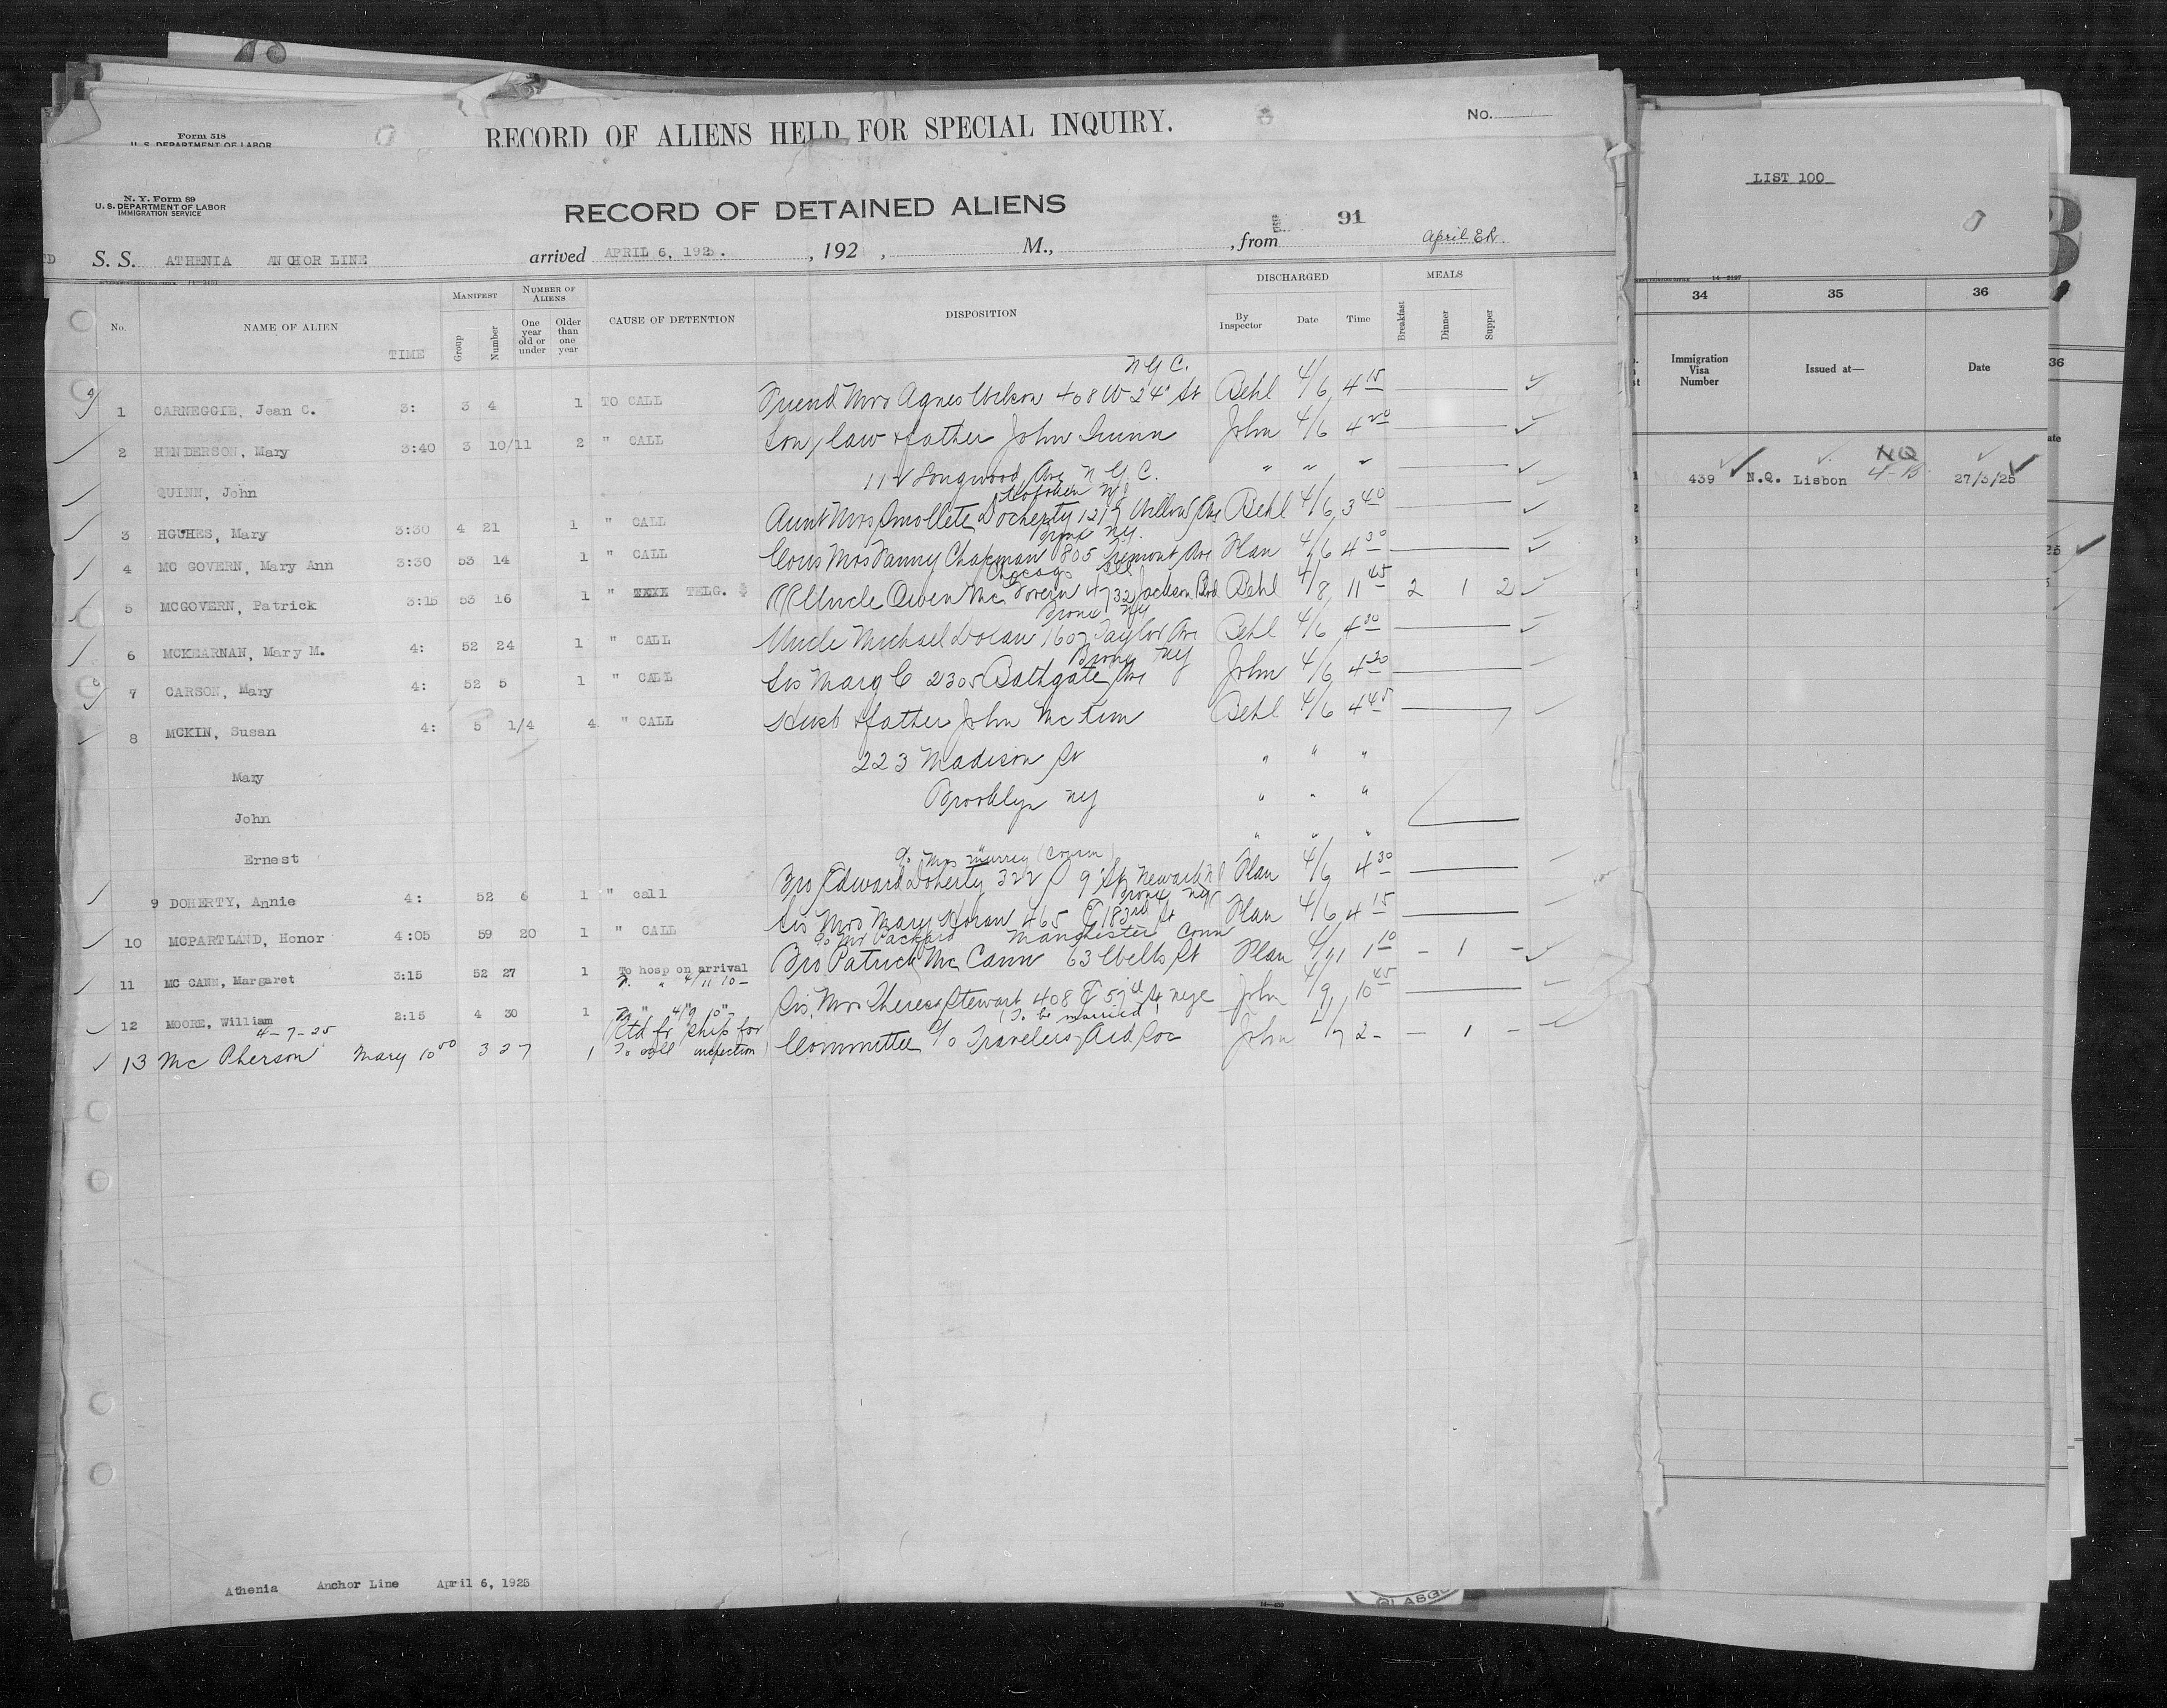 Form 518
U. S. DEPARTMENT OF LABOR
RECORD OF ALIENS HELD FOR SPECIAL INQUIRY.
No.
N. Y. Form 89
U. S. DEPARTMENT OF LABOR
IMMIGRATION SERVICE
RECORD OF DETAINED ALIENS
91
S. S. ATHENIA ANCHOR LINE arrived APRIL 6, 1925. , 192 , M., , from
DISCHARGED MEALS
No. NAME OF ALIEN TIME MANIFEST Group Number NUMBER OF ALIENS One year old or under Older than one year CAUSE OF DETENTION DISPOSITION By Inspector Date Time Breakfast Dinner Supper
N Y C.
1 CARNEGGIE, Jean C. 3: 3 4 1 TO CALL Friend Mrs Agnes Wilson 408 W 24" St Behl 4/6 4 15
2 HENDERSON, Mary 3:40 3 10/11 2 " CALL Son/law & father John Quinn John 4/6 4 20
QUINN, John Longwood Ave N Y C. " " "
Hoboken NJ
3 HGUHES, Mary 3:30 4 21 1 " CALL Aunt Mrs Docherty 1217 Willow Ave Behl 4/6 3 40
Bronx NY.
4 MC GOVERN, Mary Ann 3:30 53 14 1 " CALL Cous Mrs Fanny Chapman 805 Tremont Ave Plan 4/6 4 30
Chicago Ill
5 MCGOVERN, Patrick 3:15 53 16 1 " TELG. $ RR Uncle Owen McGovern 4732 Jackson Blvd Behl 4/8 11 45 2 1 2
Bronx NY
6 MCKEARNAN, Mary M. 4: 52 24 1 " CALL Uncle Michael Dolan 1607 Taylor Ave Behl 4/6 4 30
Bronx NY
7 CARSON, Mary 4: 52 5 1 " CALL Sis Marg C 2305 Bathgate Ave John 4/6 4 20
8 MCKIN, Susan 4: 5 1/4 4 " CALL Husb & father John McKim Behl 4/6 4 45
Mary 223 Madison St " " "
John Brooklyn NY " " "
Ernest " " "
c/o Mrs Murrey (Cousin)
9 DOHERTY, Annie 4: 52 6 1 " call Bro Edward Doherty 322 9" St Newark NJ Plan 4/6 4 30
Bronx NY
10 MCPARTLAND, Honor 4:05 59 20 1 " CALL Sis Mrs Mary Horan 465 E 183rd St Plan 4/6 4 15
c/o Mr Packard Manchester Conn
11 MC CANN, Margaret 3:15 52 27 1 To hosp on arrival Bro Patrick McCann 63 Wells St Plan 4/11 1 10 - 1 -
" 4/11 10 -
12 MOORE, William 2:15 4 30 1 " " 4/9 10 " - Sis, Mrs Theresa Stewart 408 E 57th St NYC John 4/9 10 45
4-7-25 Rtd fr Ship for (To be married)
13 Mc Pherson Mary 10 50 3 27 1 To compl inspection Committee c/o Travelers Aid Soc John 4/7 2 - - 1 -
Athenia Anchor Line April 6, 1925
LIST 100
14-2197
34 35 36
Immigration Visa Number Issued at— Date
439 N.Q. Lisbon NQ 27/3/25
36